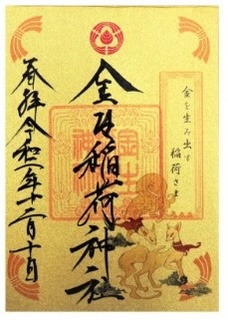 金を生み出す
稲荷さま
金生稲荷神社
奉拝 令和 年十二月十日